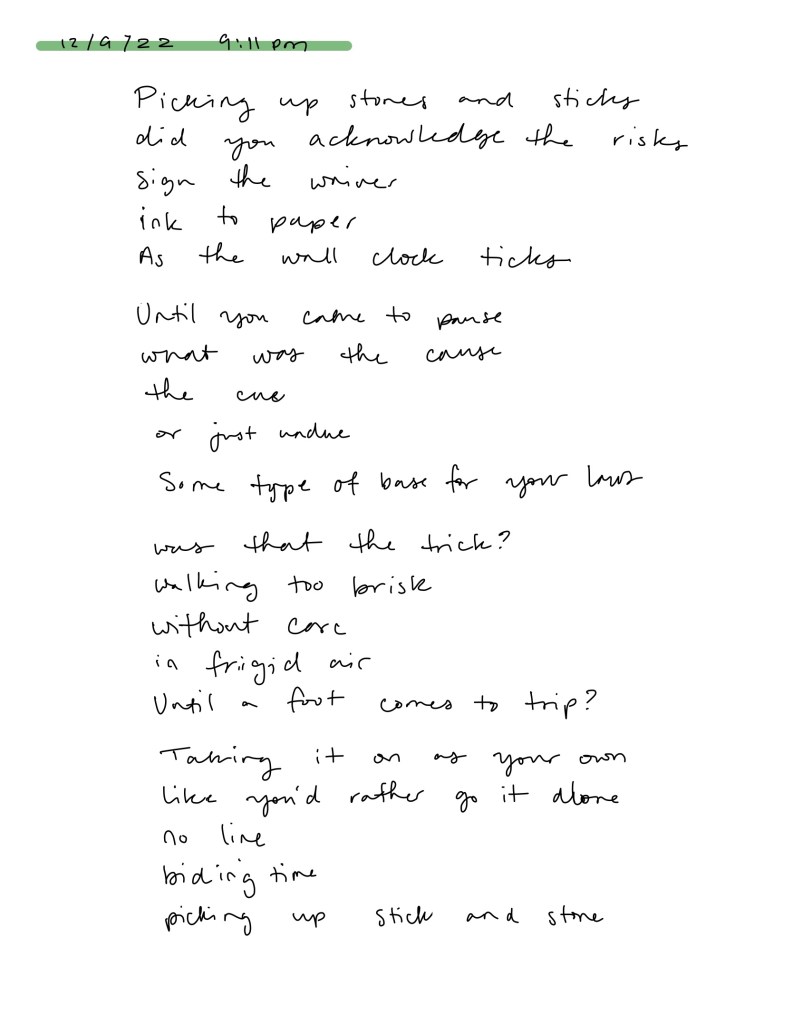 12/9/22 9:11 pm
Picking up stones and sticks
did you acknowledge the risks
sign the waiver
ink to paper
As the wall clock ticks
Until you came to pause
what was the cause
the cue
or just undue
Some type of base for your laws
was that the trick?
walking too brisk
without care
in frigid air
Until a foot comes to trip?
Taking it on as your own
like you'd rather go it alone
no line
biding time
picking up stick and stone